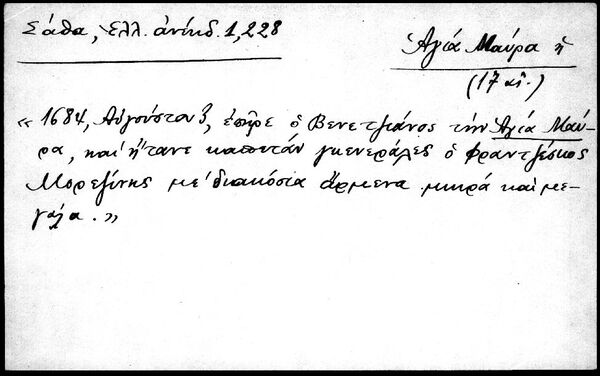 Σάθα, Ἑλλ. ἀνέκδ. 1,228
Ἁγιά Μαύρα ἡ
(17 αἰ.)
« 1684, Αὐγούστου 3, ἐπῆρε ὁ Βενετζιάνος τὴν Ἁγιά Μαύ-
ρα, καὶ ἤτανε καπετάν γκενεράλες ὁ Φραντζέσκος
Μορεζίνης μὲ διακόσια ἄρμενα μικρά καὶ με-
γάλα. »